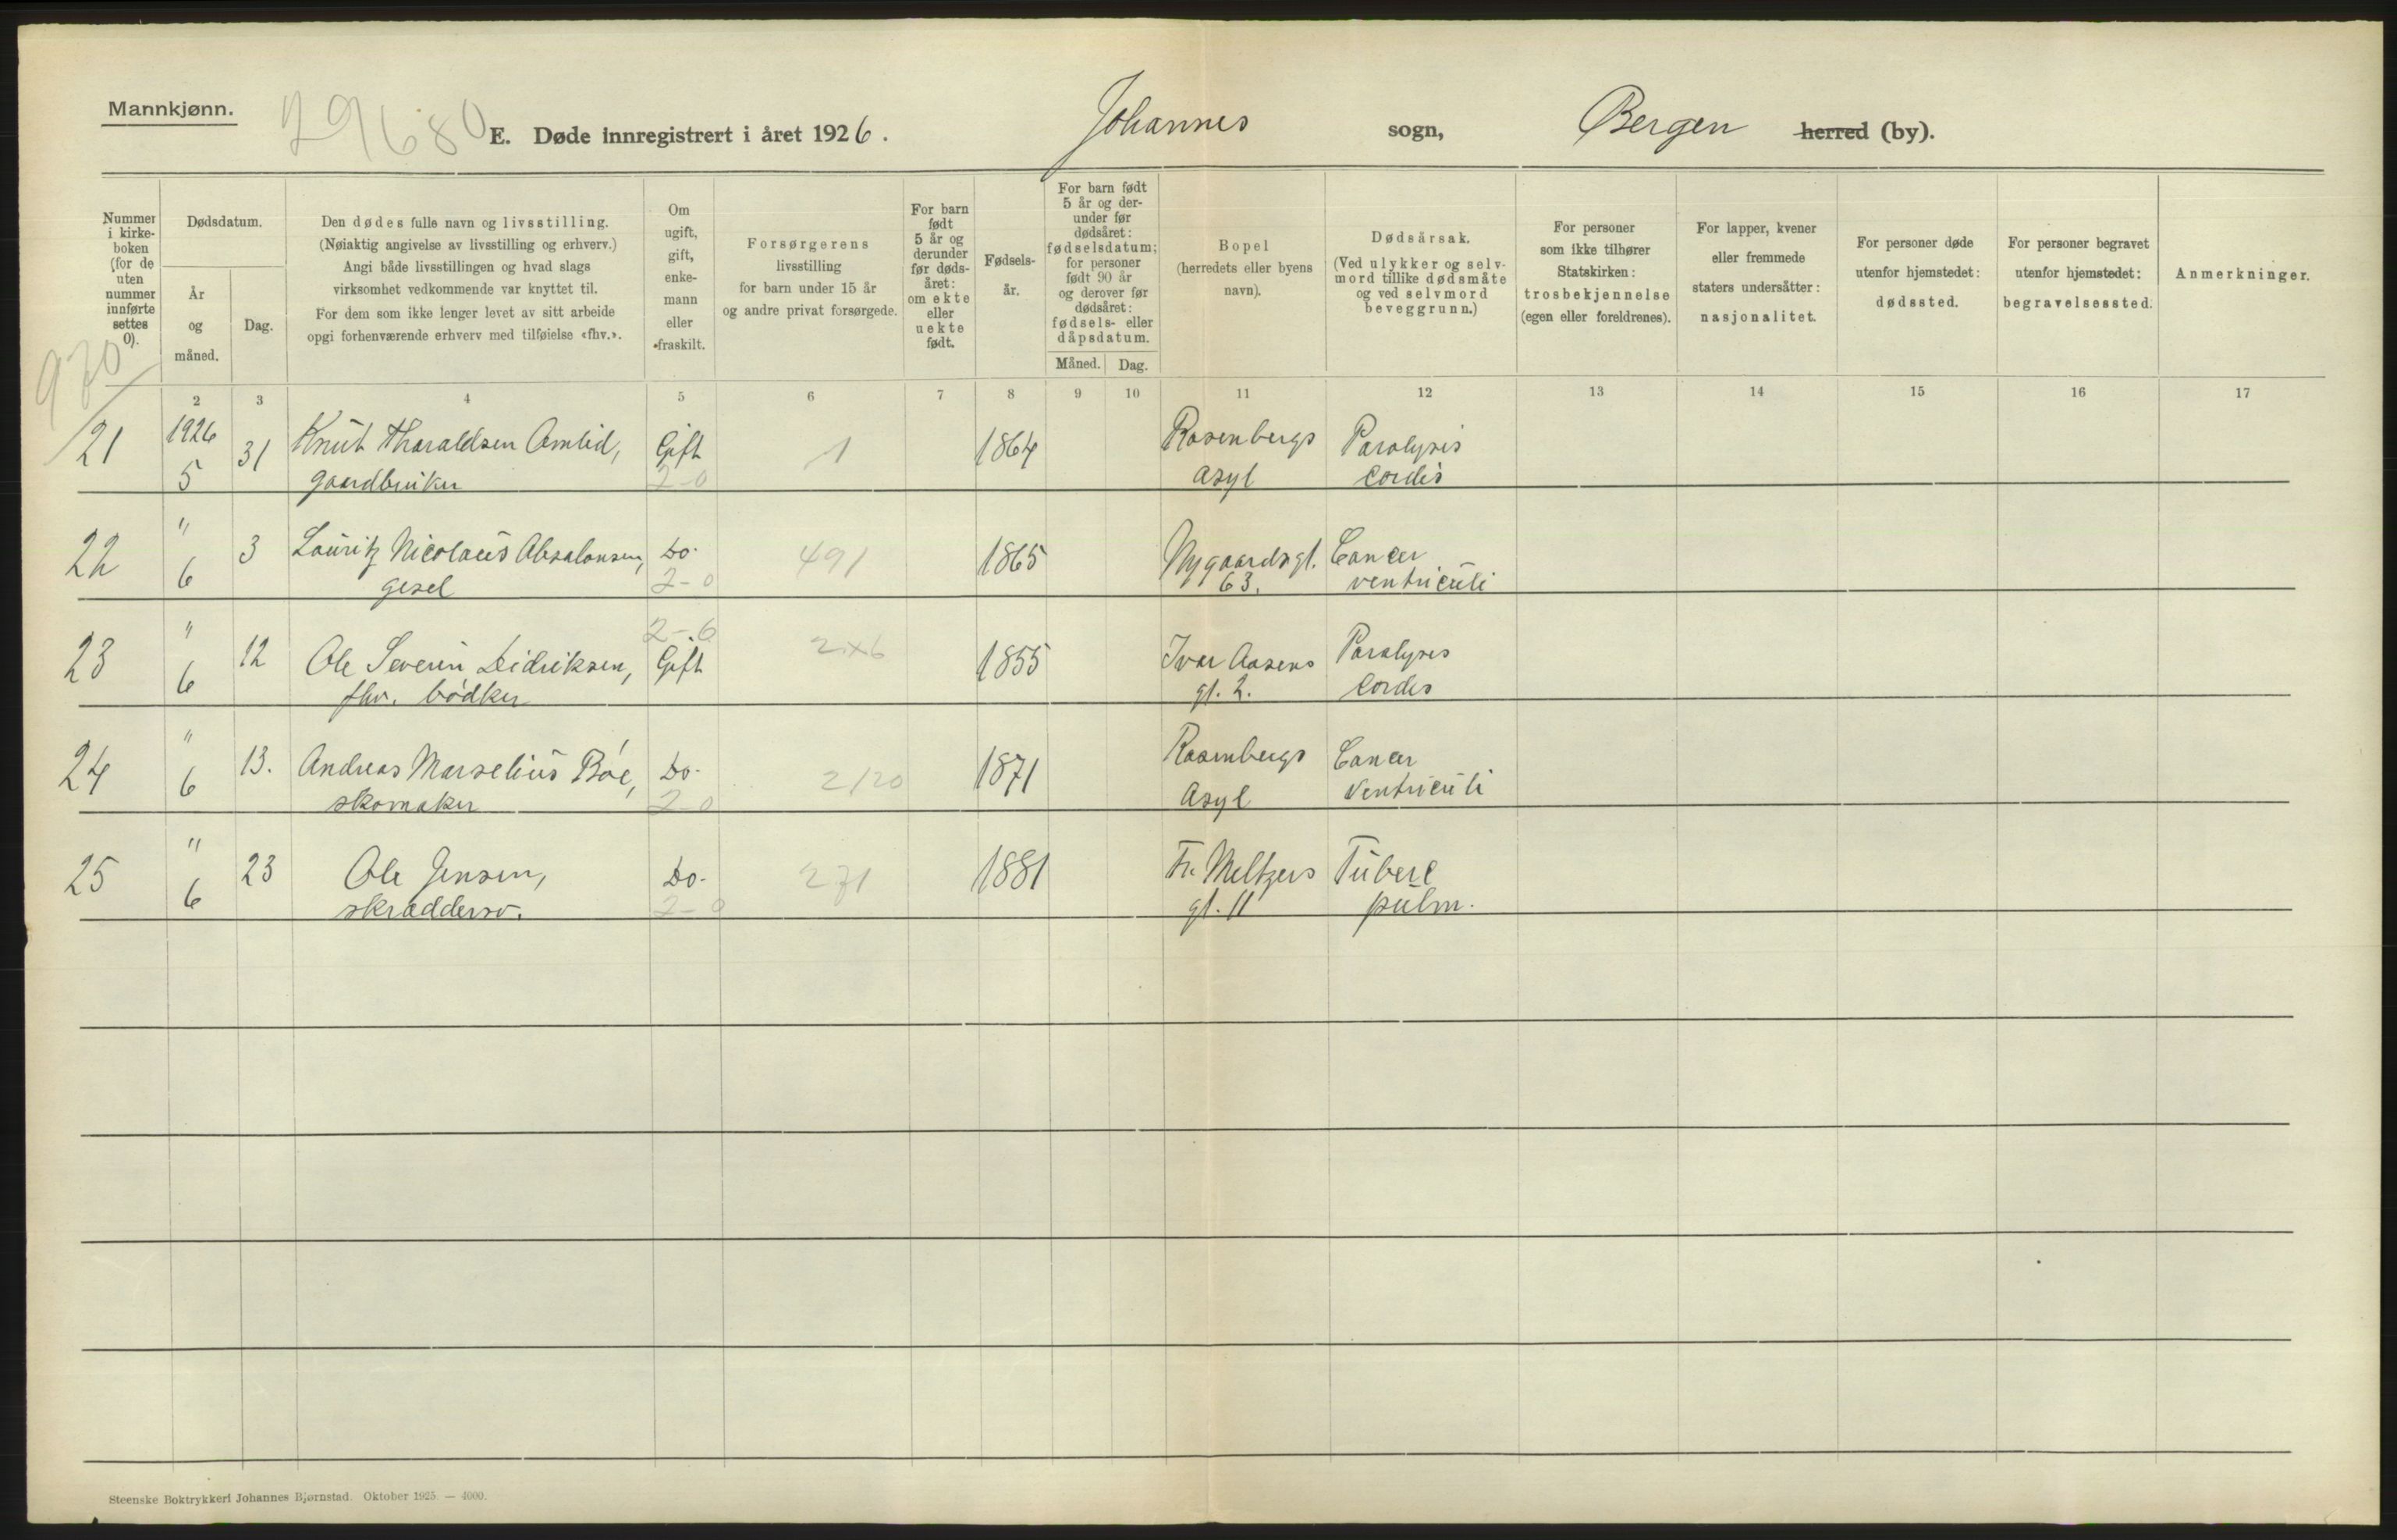 Mannkjønn.
29680
E. Døde innregistrert i året 1926. Johannes sogn, Bergen herred (by).
Nummer i kirke-boken (for de uten nummer innførte settes 0).
Dødsdatum.
År og måned.
Dag.
Den dødes fulle navn og livsstilling.
(Nøiaktig angivelse av livsstilling og erhverv.)
Angi både livsstillingen og hvad slags
virksomhet vedkommende var knyttet til.
For dem som ikke lenger levet av sitt arbeide
opgi forhenværende erhverv med tilføielse «fhv.».
Om ugift, gift, enke-mann eller fraskilt.
Forsørgerens
livsstilling
for barn under 15 år
og andre privat forsørgede.
For barn født 5 år og derunder før døds-året: om ekte eller uekte født.
Fødsels-år.
For barn født 5 år og der-under før dødsåret: fødselsdatum; for personer født 90 år og derover før dødsåret: fødsels- eller dåpsdatum.
Måned. Dag.
Bopel
(herredets eller byens
navn).
Dødsårsak.
(Ved ulykker og selv-
mord tillike dødsmåte
og ved selvmord
beveggrunn.)
For personer
som ikke tilhører
Statskirken:
trosbekjennelse
(egen eller foreldrenes).
For lapper, kvener
eller fremmede
staters undersåtter:
nasjonalitet.
For personer døde
utenfor hjemstedet:
dødssted.
For personer begravet
utenfor hjemstedet:
begravelsessted.
Anmerkninger.
970
2 3 4 5 6 7 8 9 10 11 12 13 14 15 16 17
21 1926 5 31 Knut Tharaldsen Amlid, Gift 1 1864 Rosenbergs Paralysis
gaardbruker 2-0 asyl Cordis
22 " 6 3 Lauritz Nicolaus Absalonsen, Do. 491 1865 Nygaardsgt. Cancer
gesel 2-0 63. ventriculi
23 " 6 12 Ole Severin Didriksen, 2-6 Gift 2x6 1855 Ivar Aasens Paralysis
fhv. bødker gt. 2. Cordis
24 " 6 13. Andreas Marselius Bøe, Do. 2/20 1871 Rosenbergs Cancer
skomaker 2-0 Asyl Ventriculi
25 " 6 23 Ole Jensen, Do. 271 1881 Fr. Meltzers Tuberc
skræddersv. 2-0 gt. 11 pulm.
Steenske Boktrykkeri Johannes Bjørnstad. Oktober 1925. — 4000.